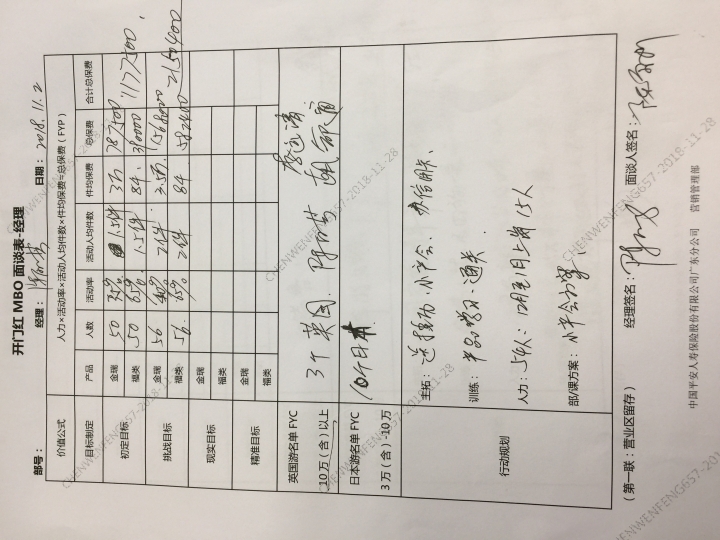 开门红 MBO 面谈表-经理
部号： 经理： 日期：2018.11.2
价值公式 人力×活动率×活动人均件数×件均保费=总保费（FYP）
目标制定 产品 人数 活动率 活动人均件数 件均保费 总保费 合计总保费
初定目标 金瑞 50 35% 1.5件 3万 787500 1177500
福类 50 65% 1.5件 8千 390000
挑战目标 金瑞 56 40% 2件 3.5万 1568000 2150400
福类 56 65% 2件 8千 582400
现实目标 金瑞
福类
精准目标 金瑞
福类
英国游名单 FYC
10万（含）以上
3个英国
日本游名单 FYC
3万（含）-10万
10个日本
行动规划
主拓： 小户会、办信用卡、
训练：产品学习、通关、
人力：54人：12月1日上岗15人
部/课方案：小户会方案、
（第一联：营业区留存） 经理签名： 面谈人签名：
中国平安人寿保险股份有限公司广东分公司 营销管理部
CHENWENFENG657-2018-11-28